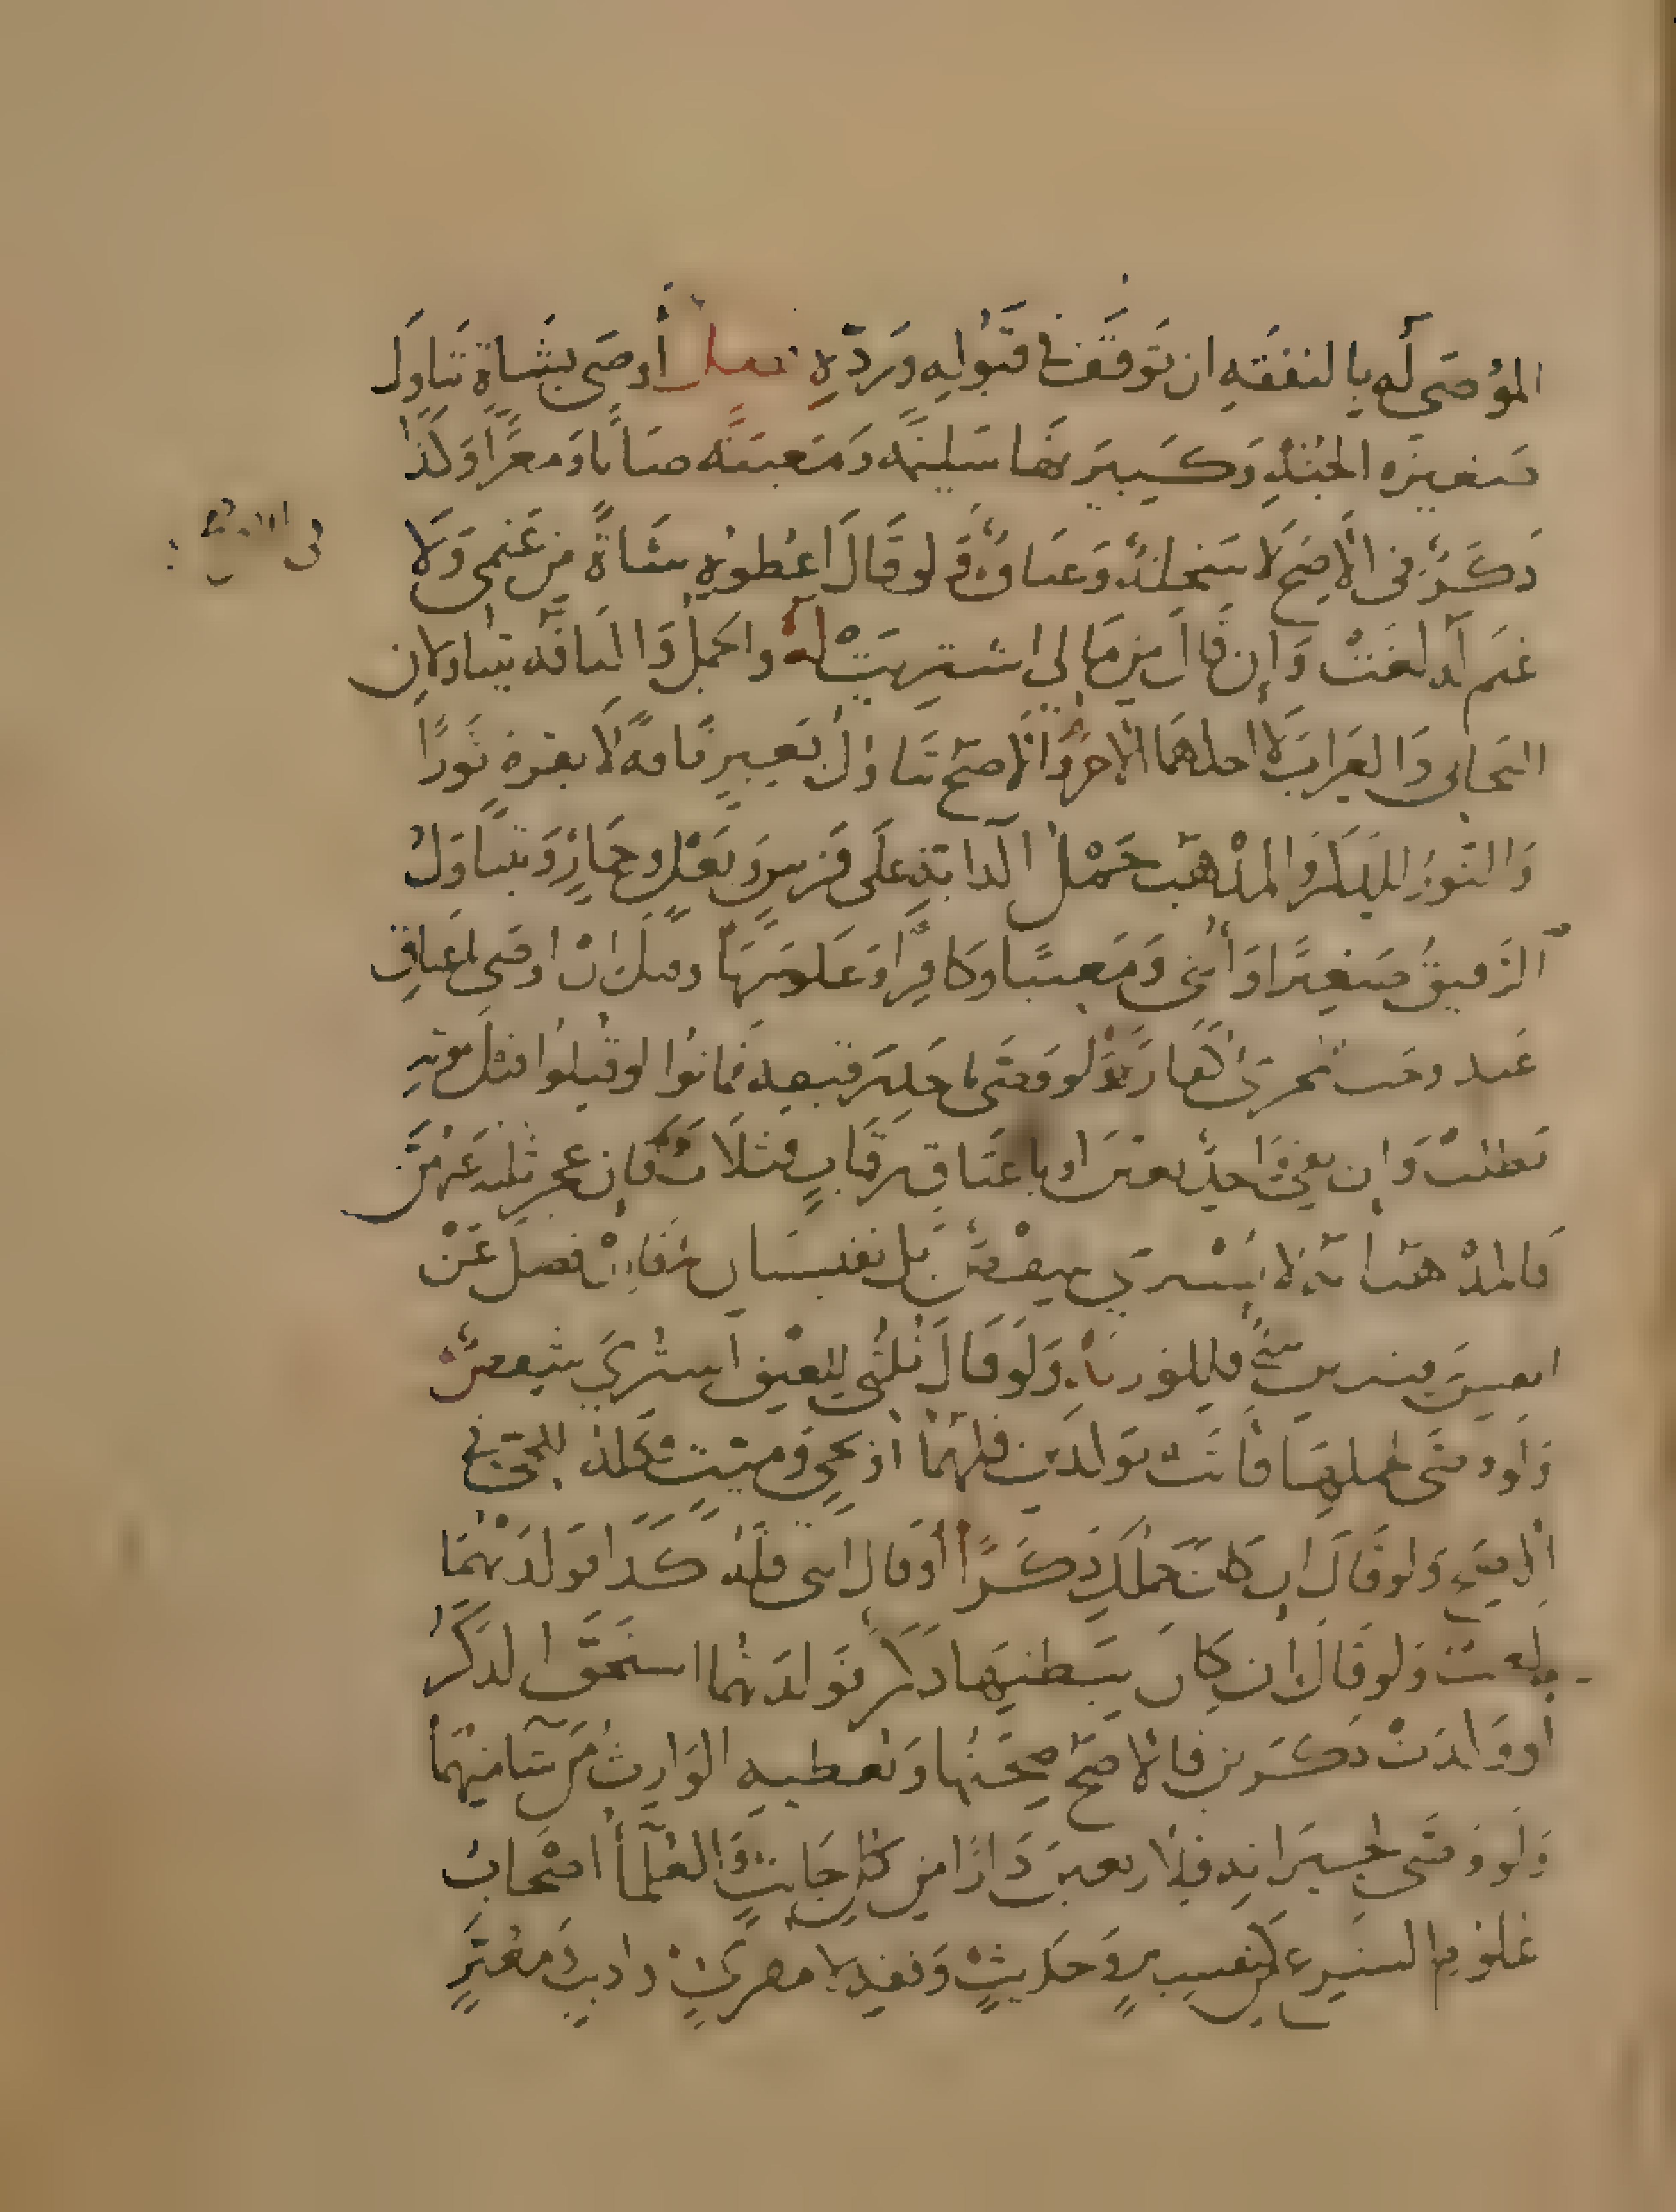 الموُصَى لَه بِالنفقَهِ ان تَوقَّفَ في قبُولِه وَرَدّهِ فصل أوصَى بشَاةٍ تناوَلَ
صَغيرَه الجُثّةِ وَكَبيرَتهَا سَلِيمَه وَمَعيبَه ضَاناً وَمعزًا وَكَذَا
ذكَرٌ في الأَصَحّ لَا سَخلَةٌ وَعنَاقٌ في ولو قَالَ اعْطوُه شَاةً مِن غَنمِى وَلَا
في الاصح
غنَم لَه لغَتْ وَإن قَالَ مِن مَالِى اشتريتْ لَهُ والجملُ وَالنَاقَه يتناولانِ
البخَاتى وَالعِرَابَ لَا احدهمَا الاخرَ وَالاصَحّ تنَاوُلُ بَعيرٍ نَاقهً لَا بقرةٍ ثَورًا
وَالثَورُ لِلذكَرِ وَالمذْهَب حَمْلُ الدابّةِ علَى فَرسٍ وَبَغلٍ وحمَارٍ وَيتنَاوَلُ
الرَقيقُ صَغيرًا وَأُنثى وَمَعيبًا وكَافِرًا وَعكسَهَا وقيل ان اوصَى باعتَاقِ
عَبد وجَب تجزئ كفارَةً ولو وصَّى باحَدِ رَقيقِه فمَاتوُا او قُتِلوُا قبلَ موتهِ
بَطلتْ وَان بقى وَاحِدٌ تعيّنَ او باعتَاقِ رِقَابٍ فثَلَاثٌ فَإن عجز ثلثه عَنْهُنّ
فَالمذْهَبُ انّهُ لا يُشْترَي شِقْصٌ بَل نفيسَتانِ فَإنْ فَضَلَ عَنْ
انفَسِ رقبتين شئٌ فللورثَةِ وَلَو قَالَ ثُلثُى لِلعِتقِ اشْتُرِيَ شِقصٌ
وَلو وصّى لحملِهَا فأتَتْ بوَلدَينِ فلَهُمَا أو بحىٍّ وَميّتٍ فكلّه للحىّ في
الاصَحِّ وَلو قَالَ ان كَانَ حَملُكِ ذكَرًا أوْ قال انثى فلَهُ كذَا فوَلدَتهُمَا
لغت وَلو قَالَ ان كان ببطنِهَا ذكَرٌ فوَلدَتهُمَا استحَقّ الذكَرُ
أو وَلدَتْ ذكَرَينِ فالاصَحّ صحّتُهَا وَيُعطِيهِ الوَارِثُ مَن شَاءَ مِنهُمَا
وَلَو وَصّى لجيرَانِه فلأربعينَ دَارًا مِن كلِّ جَانِبٍ وَالعُلَمَاءُ اصْحَابُ
عُلوُمِ الشرْعِ مِن تفسيرٍ وَحَديثٍ وَفقهٍ لا مقرئٍ وَاديبٍ وَمعَبّرٍ